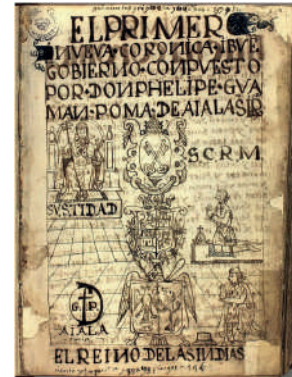 ELPRIMER
NVEVA·CORONICA·IBVE
GOBIERNO·CONPVESTO
POR·DON·PHELIPE·GVA
MAN·POMA·DE·AIALA·S
S.C.R.M.
SVSTIDAD
AIALA
EL REINO DE LAS INDIAS